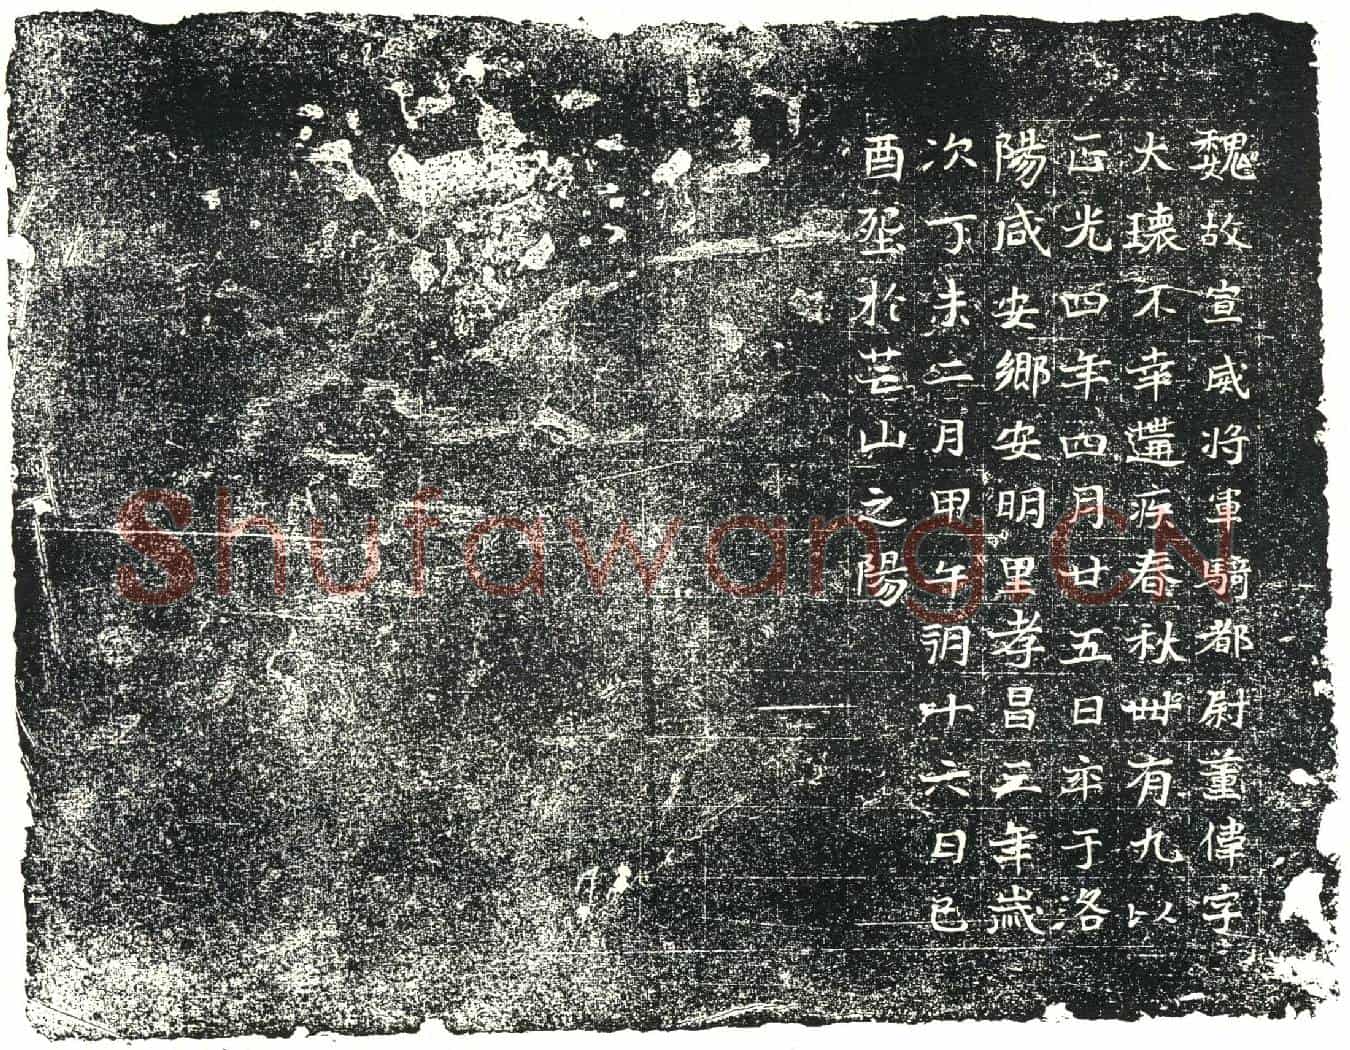 魏故宣威将軍騎都尉董偉字
大瓌不幸遘疾春秋卌有九以
正光四年四月廿五日卒于洛
陽咸安鄉安明里孝昌三年歲
次丁未二月甲午朔十六日己
酉墾於芒山之陽
Shufawang.CN